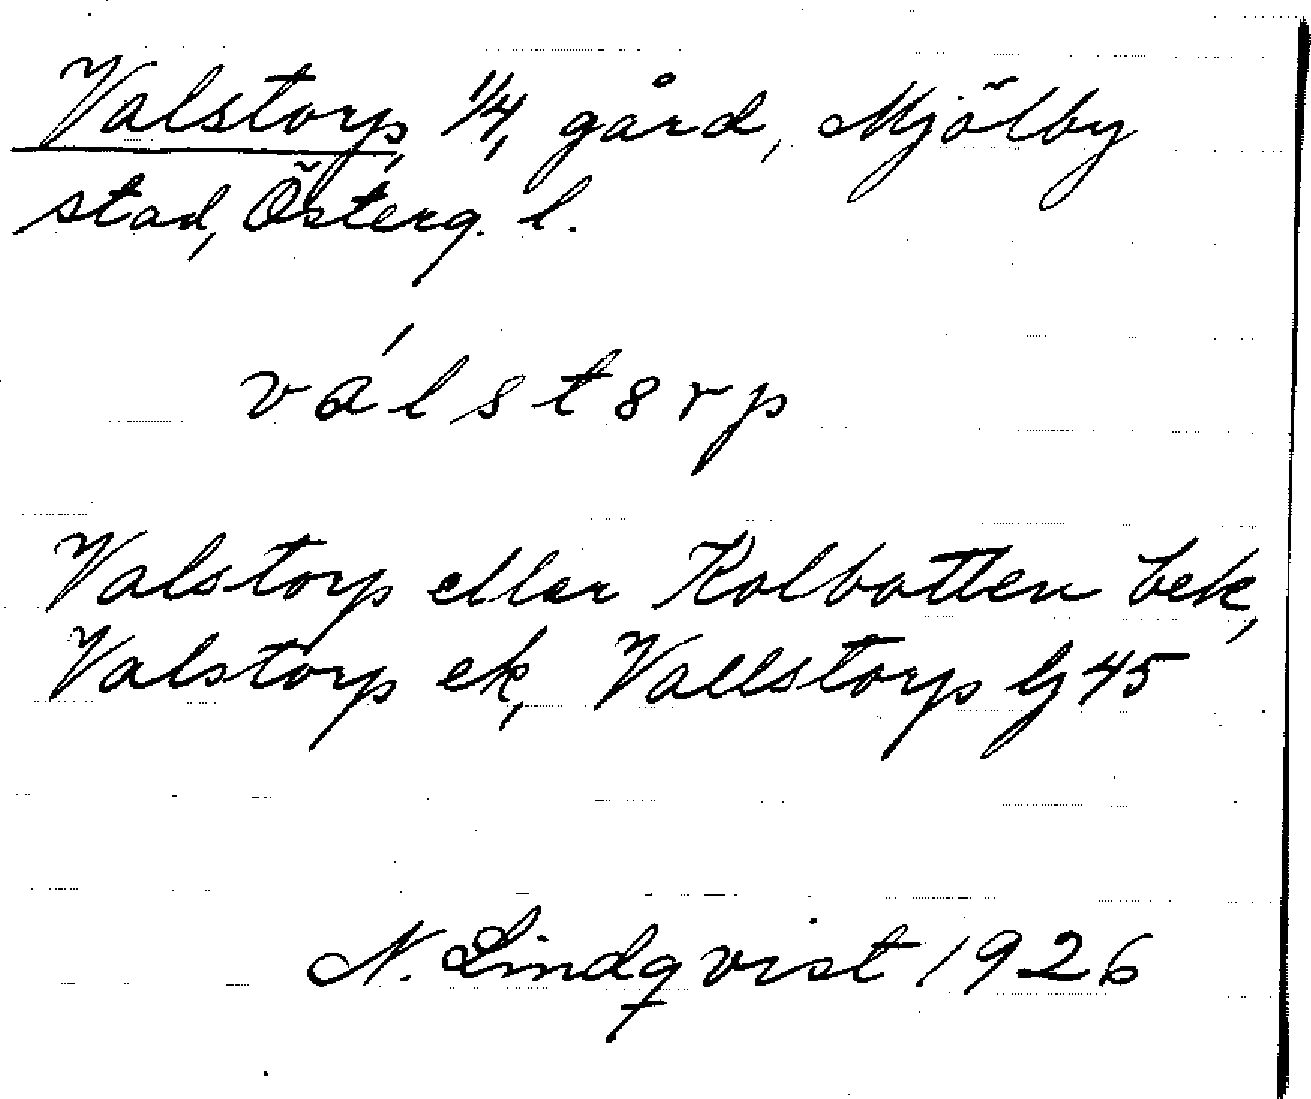 Valstorp, 1/4, gård, Mjölby
stad, Österg. l.
válst8rp
Valstorp eller Kolbotten bek,
Valstorp ek, Vallstorp Gj 45
N. Lindqvist 1926